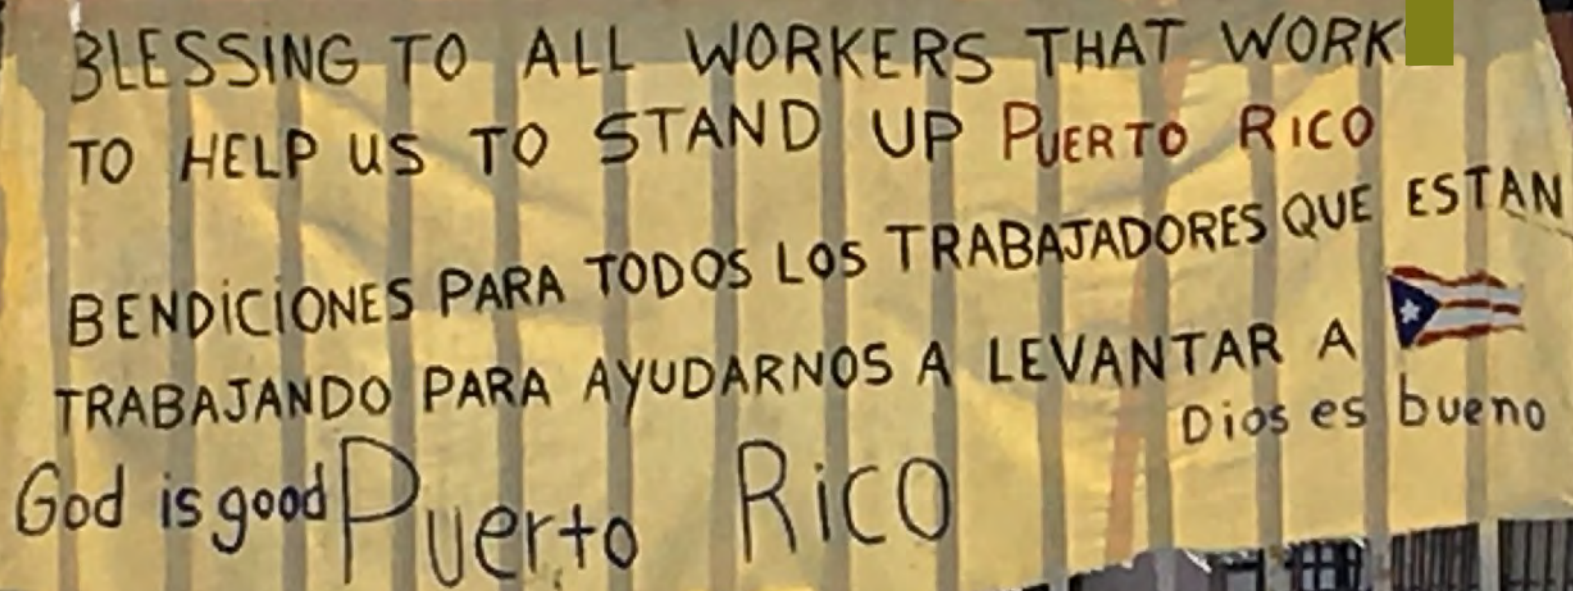 BLESSING TO ALL WORKERS THAT WORK
TO HELP US TO STAND UP PUERTO RICO
BENDICIONES PARA TODOS LOS TRABAJADORES QUE ESTAN
TRABAJANDO PARA AYUDARNOS A LEVANTAR A
Dios es bueno
God is good Puerto Rico